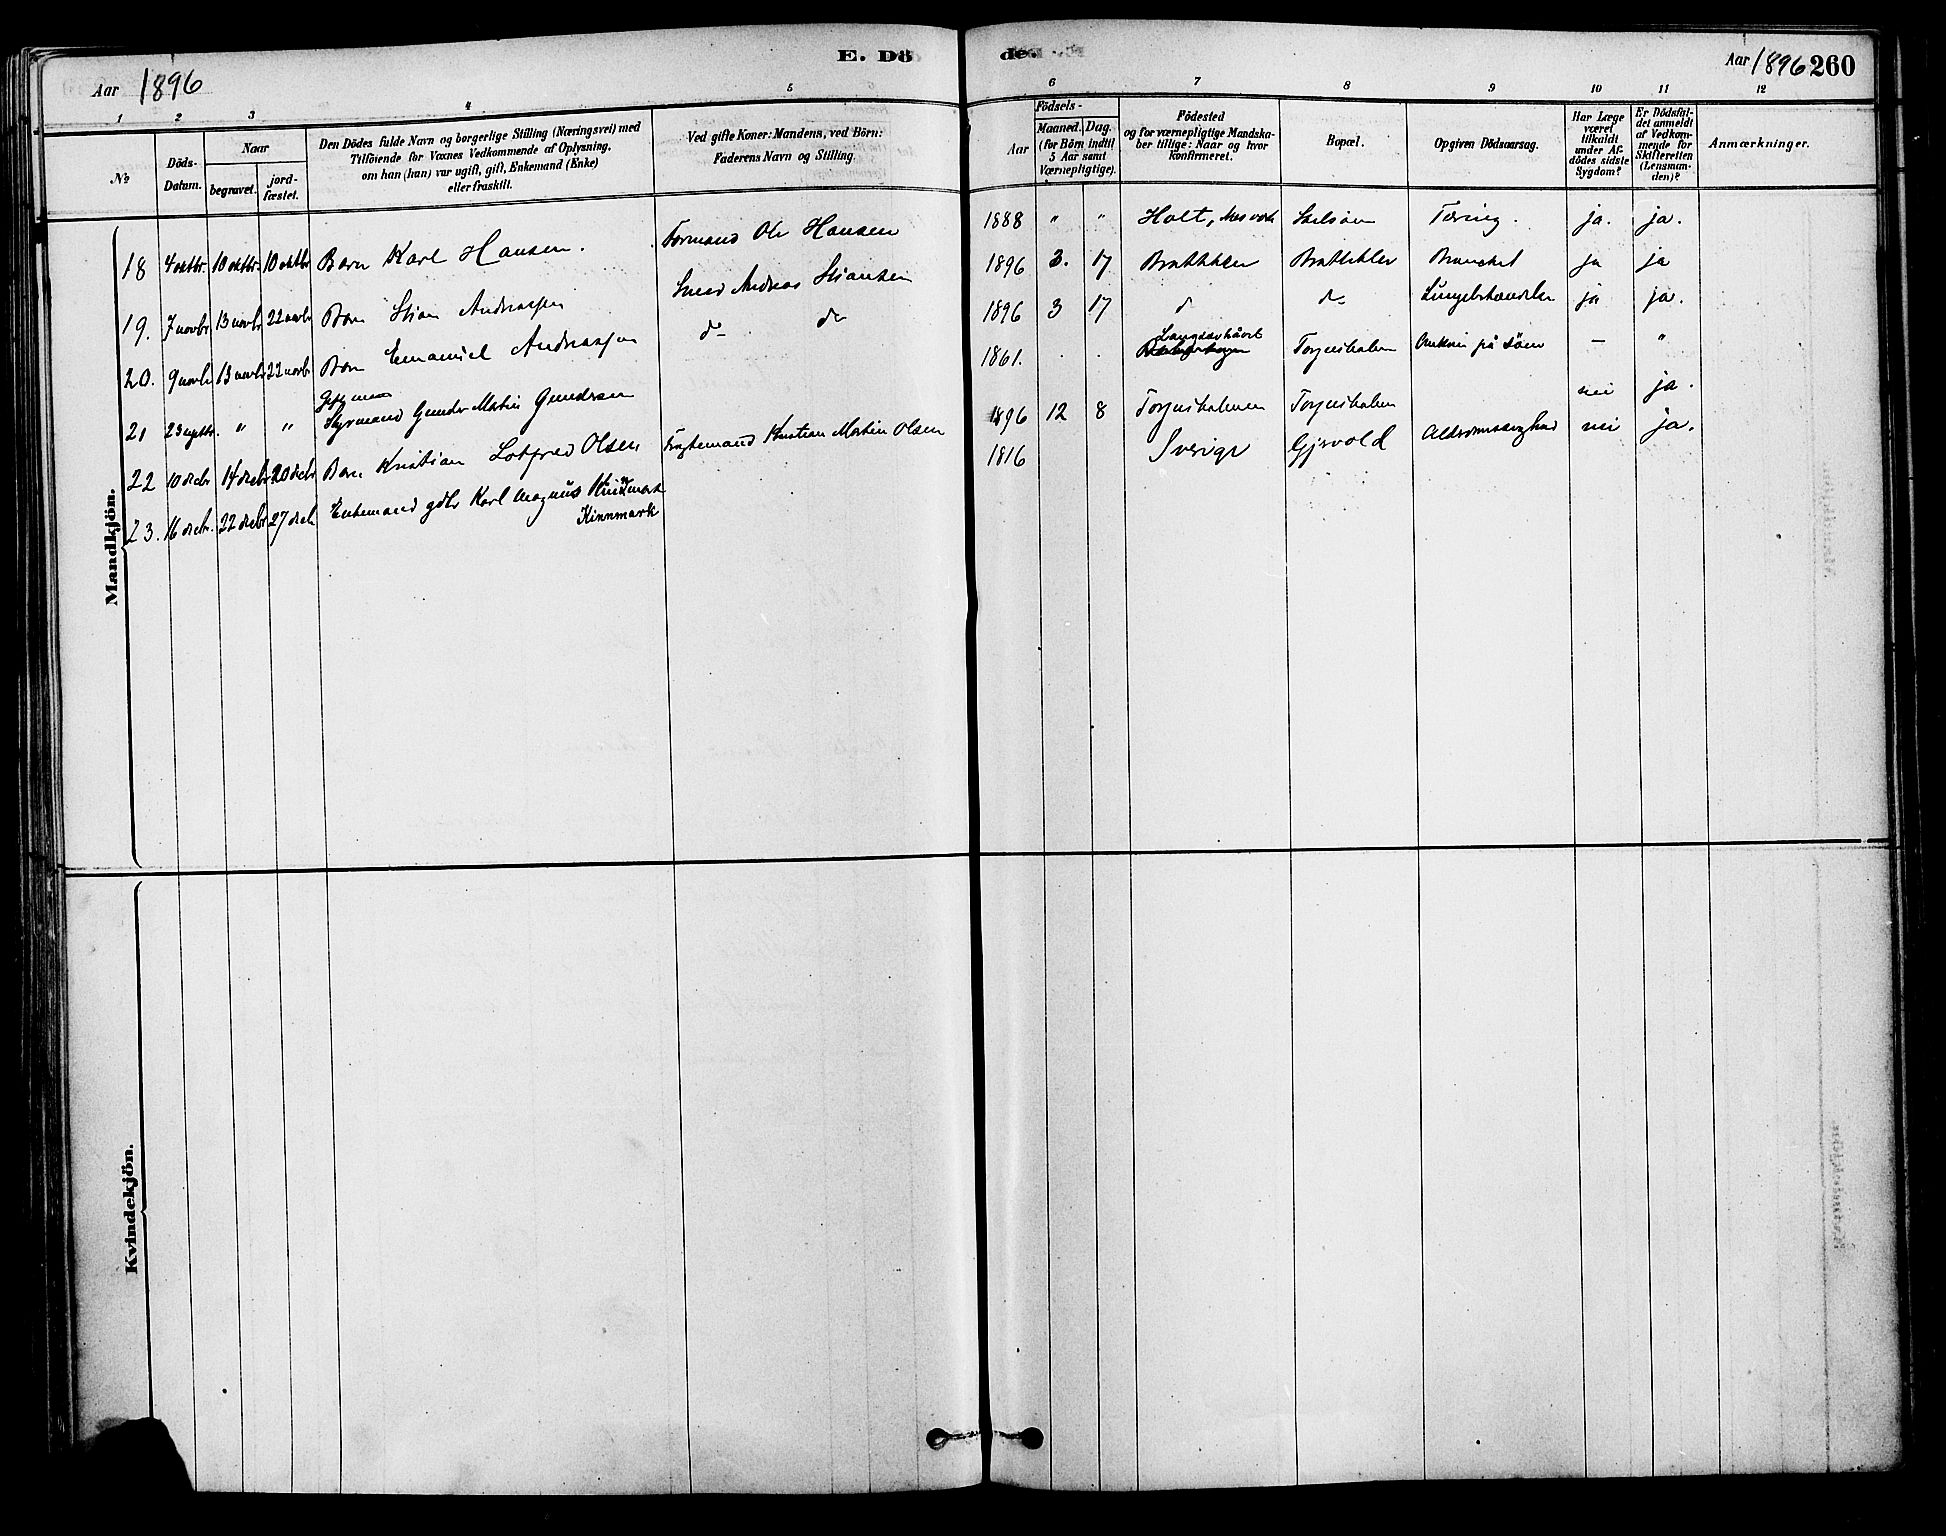 E. Döde.
Aar 1896
Aar 1896 260
1 2 3 4 5 6 7 8 9 10 11 12
No
Döds-Datum.
Naar
begravet.
jordfæstet.
Den Dödes fulde Navn og borgerlige Stilling (Næringsvei) med
Tilföiende for Voxnes Vedkommende af Oplysning,
om han (hun) var ugift, gift, Enkemand (Enke)
eller fraskilt.
Ved gifte Koner: Mandens, ved Börn:
Faderens Navn og Stilling.
Födsels-
Aar
Maaned. Dag.
(for Börn indtil
5 Aar samt
Værnepligtige).
Födested
og for værnepligtige Mandskaber
tillige: Naar og hvor
konfirmeret.
Bopæl.
Opgiven Dödsaarsag.
Har Læge
været
tilkaldt
under Afdödes
sidste
Sygdom?
Er Dödsfaldet
anmeldt
af Vedkommende
for
Skifteretten
(Lensmanden)?
Anmærkninger.
Mandkjön.
18 4 oktbr. 10 oktbr. 10 oktbr Barn Karl Hansen. Formand Ole Hansen 1888 " " Holt, Tæring. ja. ja.
19. 7 novbr 13 novbr 22 novbr Barn Stian Andreassen Andreas Stiansen 1896 3. 17 Bratteklev Bratteklev ja ja
20. 9 novbr 13 novbr 22 novbr Barn Emanuel Andreassen do do 1896 3 17 do do Lungebetændelse ja ja.
21 23 " " Gift mand
Styrmand Gunder Martin Gundersen 1861. Torjusholmen Omkom på Söen – "
22 10 decbr 14 decbr 20 decbr Barn Kristian Lotfred Olsen Kristian Martin Olsen 1896 12 8 Torjusholmen Torjusholmen nei ja.
23. 16 decbr. 22 decbr 27 decb Enkemand Karl Magnus
Kinnmark 1816 Sverige Gjevold Alderdomssvaghed nei ja.
Kvindekjön.